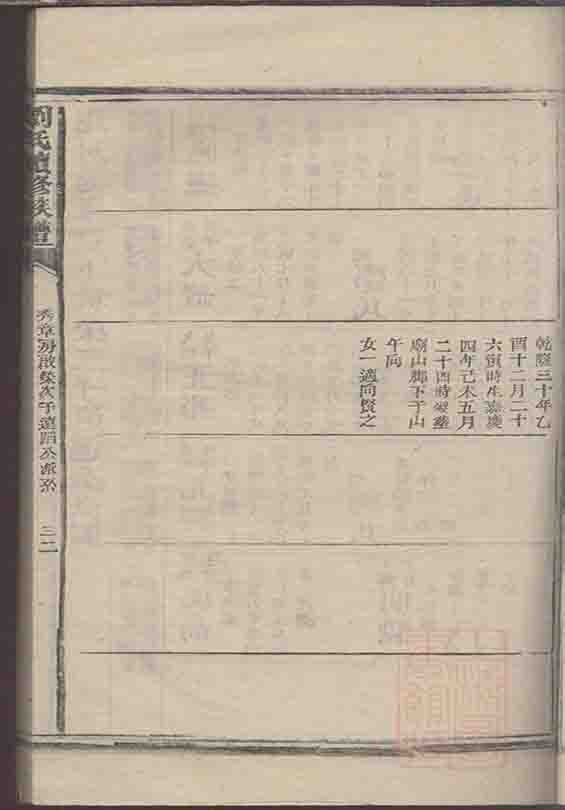 乾隆三十年乙
酉十二月二十
六寅時生嘉慶
四年己未五月
二十酉時歿葬
廟山脚下子山
午向
女一適向賢之
劉氏續修族譜
秀章房啟榮次子遠蹈公派系
三二